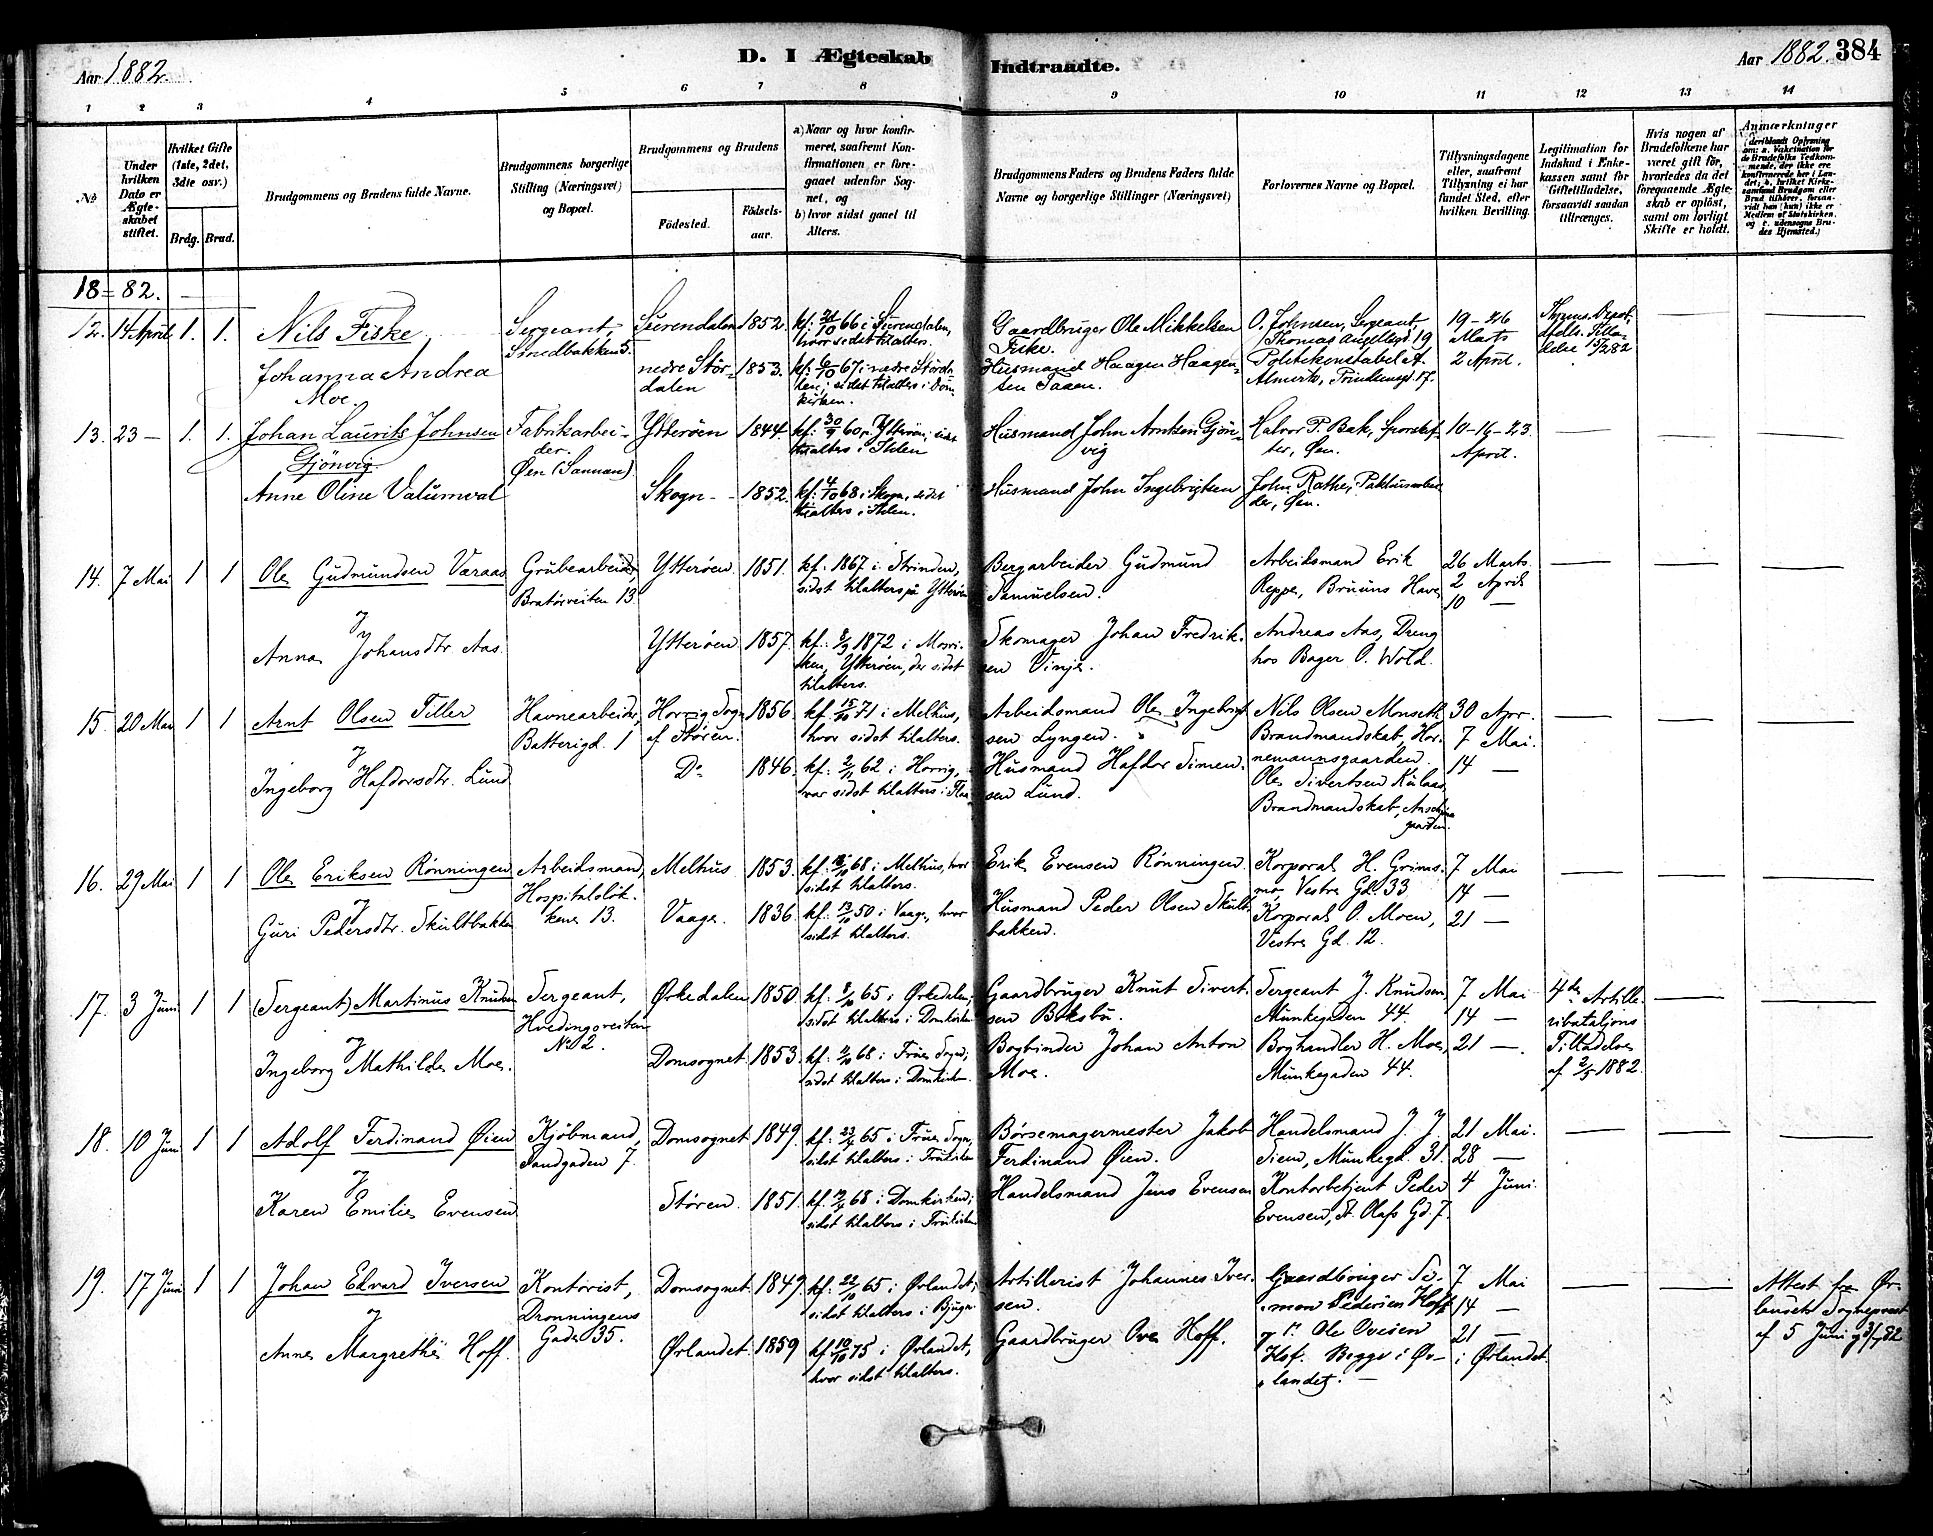 Aar 1882.
D. I Ægteskab Indtraadte.
Aar 1882. 384
1 2 3 4 5 6 7 8 9 10 11 12 13 14
No
Under hvilken Dato er Ægteskabet stiftet.
Hvilket Gifte (1ste, 2det, 3die osv.)
Brdg. Brud.
Brudgommens og Brudens fulde Navne.
Brudgommens borgerlige Stilling (Næringsvei) og Bopæl.
Brudgommens og Brudens
Fødested.
Fødselsaar.
a) Naar og hvor konfirmeret, saafremt Konfirmationen er foregaaet udenfor Sognet, og
b) hvor sidst gaaet til Alters.
Brudgommens Faders og Brudens Faders fulde Navne og borgerlige Stillinger (Næringsvei)
Forlovernes Navne og Bopæl.
Tillysningsdagene eller, saafremt Tillysning ei har fundet Sted, efter hvilken Bevilling.
Legitimation for Indskud i Enkekassen samt for Giftetilladelse, forsaavidt saadan tiltrænges.
Hvis nogen af Brudefolkene har været gift før, hvorledes da det foregaaende Ægteskab er opløst, samt om lovligt Skifte er holdt.
Anmærkninger (deriblandt Oplysning om: a. Vakcination for de Brudefolks Vedkommende, der ikke ere konfirmerede her i Landet; b. hvilket Kirkesamfund Brudgom eller Brud tilhører, forsaavidt han (hun) ikke er Medlem af Statskirken, og c. udensogns Brudes Hjemsted.)
18=82.
12. 14 April 1. 1. Nils Fiske
Johanna Andrea
Moe.
Sergeant,
Smedbakken 5.
Surendalen 1852.
nedre Størdalen 1853.
kf: 21/10 66 i Surendalen,
hvor sidst tilalters.
kf: 6/10 67 i nedre Størdalen; sidst tilalters i Domkirken.
Gaardbruger Ole Mikkelsen
Fiske.
Husmand Haagen Haagensen Faaen.
O. Johnsen, Sergeant,
Thomas Angellsgd 19
Politikonstabel A.
Almerts, Prindsensgd. 17.
19-26
Marts
2 April.
13. 23 — 1. 1. Johan Laurits Johnsen
Gjönvig.
Anne Oline Valumval
Fabrikarbeider.
Øen (Sannan).
Ytterøen 1844.
Skogn 1852.
kf: 30/9 60, Ytterøen; sidst
tilalters i Ihlen
kf: 4/10 68 i Skogn, sidst
tilalters i Ihlen.
Husmand John Arntsen Gjönvig
Husmand John Ingebrigtsen
Halvor P. Bak,
Øen.
John Rathe, Pakhusarbeider, Øen.
10-16-23
April.
14. 7 Mai 1 1 Ole Gudmundsen Væraas
J
Anna Johansdtr Aas.
Grubearbeider,
Bratørveiten 13.
Ytterøen. 1851.
Ytterøen 1857.
kf. 1867 i Strinden,
sidst tilalters på Ytterøen
kf: 8/9 1872 i Mosviken, Ytterøen, der sidst
tilalters.
Bergarbeider Gudmund
Samuelsen.
Skomager Johan Fredriksen Vinje.
Arbeidsmand Erik
Reppe, Bruuns Have
Andreas Aas, Dreng
hos Bager O. Wold.
26 Marts.
2 April
10 —
15. 20 Mai 1 1 Arnt Olsen Tiller
J
Ingeborg Hafdorsdtr. Lund
Havnearbeider,
Batterigd. 1
Horrig Sogn
af Støren. 1856.
Do 1846.
kf. 15/10 71 i Melhus,
hvor sidst tilalters.
kf: 2/11 62 i Horrig,
var sidst tilalters i
Arbeidsmand Ole Ingebrigtsen Lyngen.
Husmand Hafdor Simensen Lund.
Nils Olsen Monseth
Brandmandskab, Hornemannsgaarden.
Ole Sivertsen Kulaas,
Brandmandskab,
gaarden.
30 Apr.
7 Mai.
14 —
16. 29 Mai 1 1 Ole Eriksen Rönningen
J
Guri Pedersdtr. Skultbakken
Arbeidsmand,
Hospitalsløkkene 13.
Melhus 1853.
Vaage. 1836.
68 i Melhus, hvor
sidst tilalters.
kf: 13/10 50 i Vaage, hvor
sidst tilalters.
Erik Evensen Rønningen
Husmand Peder Olsen Skultbakken.
Korporal H. Grimsmo, Vestre Gd. 33
Korporal O. Moen,
Vestre Gd. 12.
7 Mai
14 —
21 —
17. 3 Juni 1 1 (Sergeant) Martinus Knudsen
J
Ingeborg Mathilde Moe.
Sergeant,
Hvedingsveiten
No 2.
Ørkedalen 1850.
Domsognet 1853.
kf: 8/10 65 i Ørkedalen,
sidst tilalters i Domkirken
68 i Frue Sogn;
sidst tilalters i Domkirken.
Gaardbruger Knut Sivertsen Boksbu.
Bogbinder Johan Anton
Moe.
Sergeant J. Knudsen,
Munkegaden 44.
Boghandler H. Moe,
Munkegaden 44.
7 Mai
14 —
21 —.
4de Artilleribataljons
Tilladelse
af 2/5 1882.
18. 10 Juni 1 1 Adolf Ferdinand Øien
J
Karen Emilie Evensen
Kjöbmand,
Sandgaden 7.
Domsognet 1849.
Støren. 1851.
kf: 23/4 65 i Frue Sogn,
sidst tilalters i Fruekirken
68 i Domkirken;
sidst tilalters i Fruekirken
Børsemagermester Jakob
Ferdinand Øien.
Handelsmand Jens Evensen
Handelsmand J. J.
Siem, Munkegd. 31.
Kontorbetjent Peder
Evensen, St. Olafs Gd. 7.
21 Mai.
28 —
4 Juni.
19. 17 Juni 1 1 Johan Edvard Iversen
J
Anne Margrethe Hoff.
Kontorist,
Dronningens
Gade 35.
Domsognet 1849.
Ørlandet 1859
kf: 22/10 65 i Ørlandet;
sidst tilalters i Bjugn
kf 10/10 75 i Ørlandet,
hvor sidst tilalters.
Artillerist Johannes Iversen.
Gaardbruger Ove Hoff.
Gaardbruger Simon Pedersen Hoff
Ole Ovesen
Hof. Begge i Ørlandet.
7 Mai
14 —
21 —
i Ørlandet
Attest fra Ørlandets Sogneprest
af 5 Juni